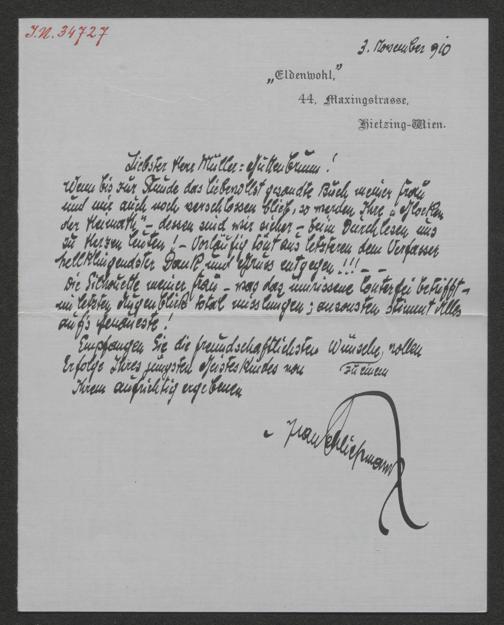 I.N. 34727
3. November 910
„Eldenwohl,"
44, Maxingstrasse,
Hietzing-Wien.
Liebster Herr Müller-Guttenbrunn!
Wenn bis zur Stunde das liebevollst gesandte Buch meiner Frau
und mir auch noch verschlossen blieb, so werden Ihre „Glocken
der Heimath" – dessen sind wir sicher – beim Durchlesen uns
zu Herzen läuten! – Vorläufig tönt aus letzteren dem Verfasser
hellklingendster Dank und Gruss entgegen!!! – –
Die Silhouette meiner Frau – was das umrissene Conterfei betrifft –
im letzten Augenblick total misslungen; ansonsten stimmt Alles
auf's genaueste!
Empfangen Sie die freundschaftlichsten Wünsche, vollen
Erfolge Ihres jüngsten Geisteskindes von
Ihrem aufrichtig ergebenen